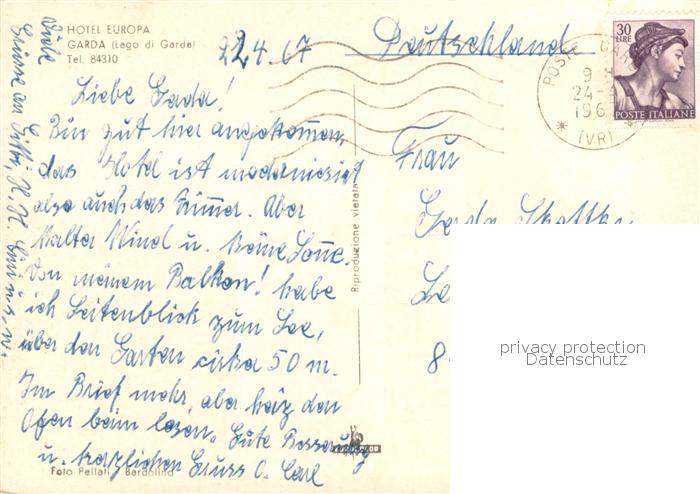 HOTEL EUROPA
GARDA (Lago di Garda)
Tel. 84310
22.4.67
Liebe Gerda!
Bin gut hier angekommen,
das Hotel ist modernisiert
also auch das Zimmer. Aber
kalter Wind u. keine Sonne.
Von meinem Balkon! habe
ich Seitenblick zum See,
über den Garten zirka 50 m.
Im Brief mehr, aber heiz den
Ofen beim lesen. Gute Besserung
u. herzlichen Gruss O. Carl
Viele
Grüsse an
u.s.w.
Foto Pellati Bardolino
Riproduzione vietata
Deutschland
Frau
Gerda
8
POSTE
9
24-4
196
(VR)
30
LIRE
POSTE ITALIANE
privacy protection
Datenschutz